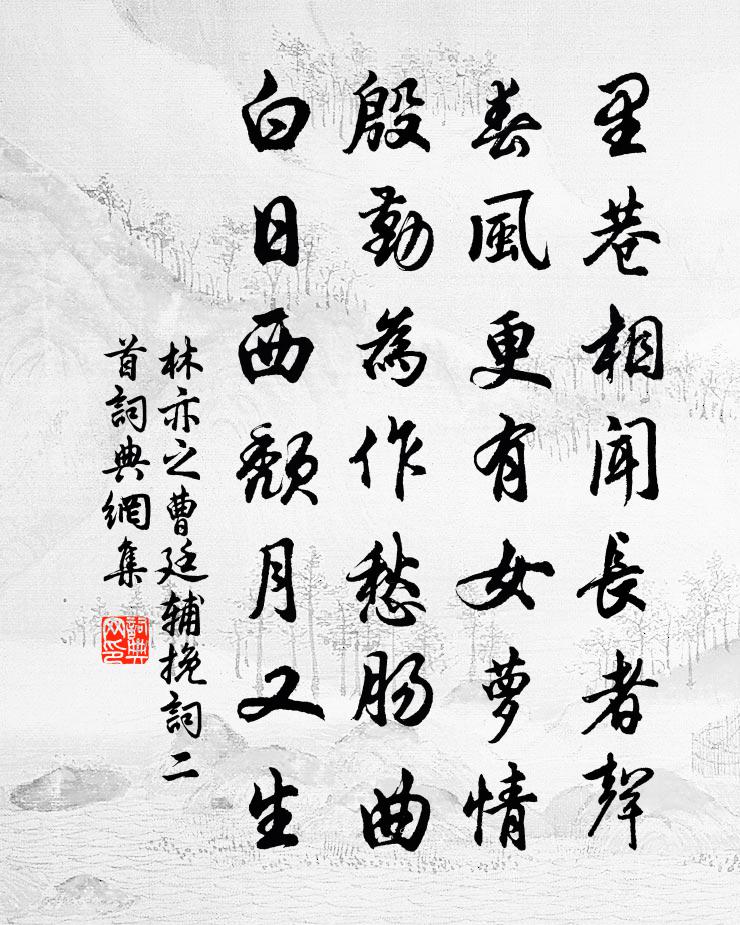 里巷相聞長者聲
春風更有女夢情
殷勤為作愁腸曲
白日西頹月又生
林亦之曹廷輔挽詞二
首詞典網集
詞典
网印